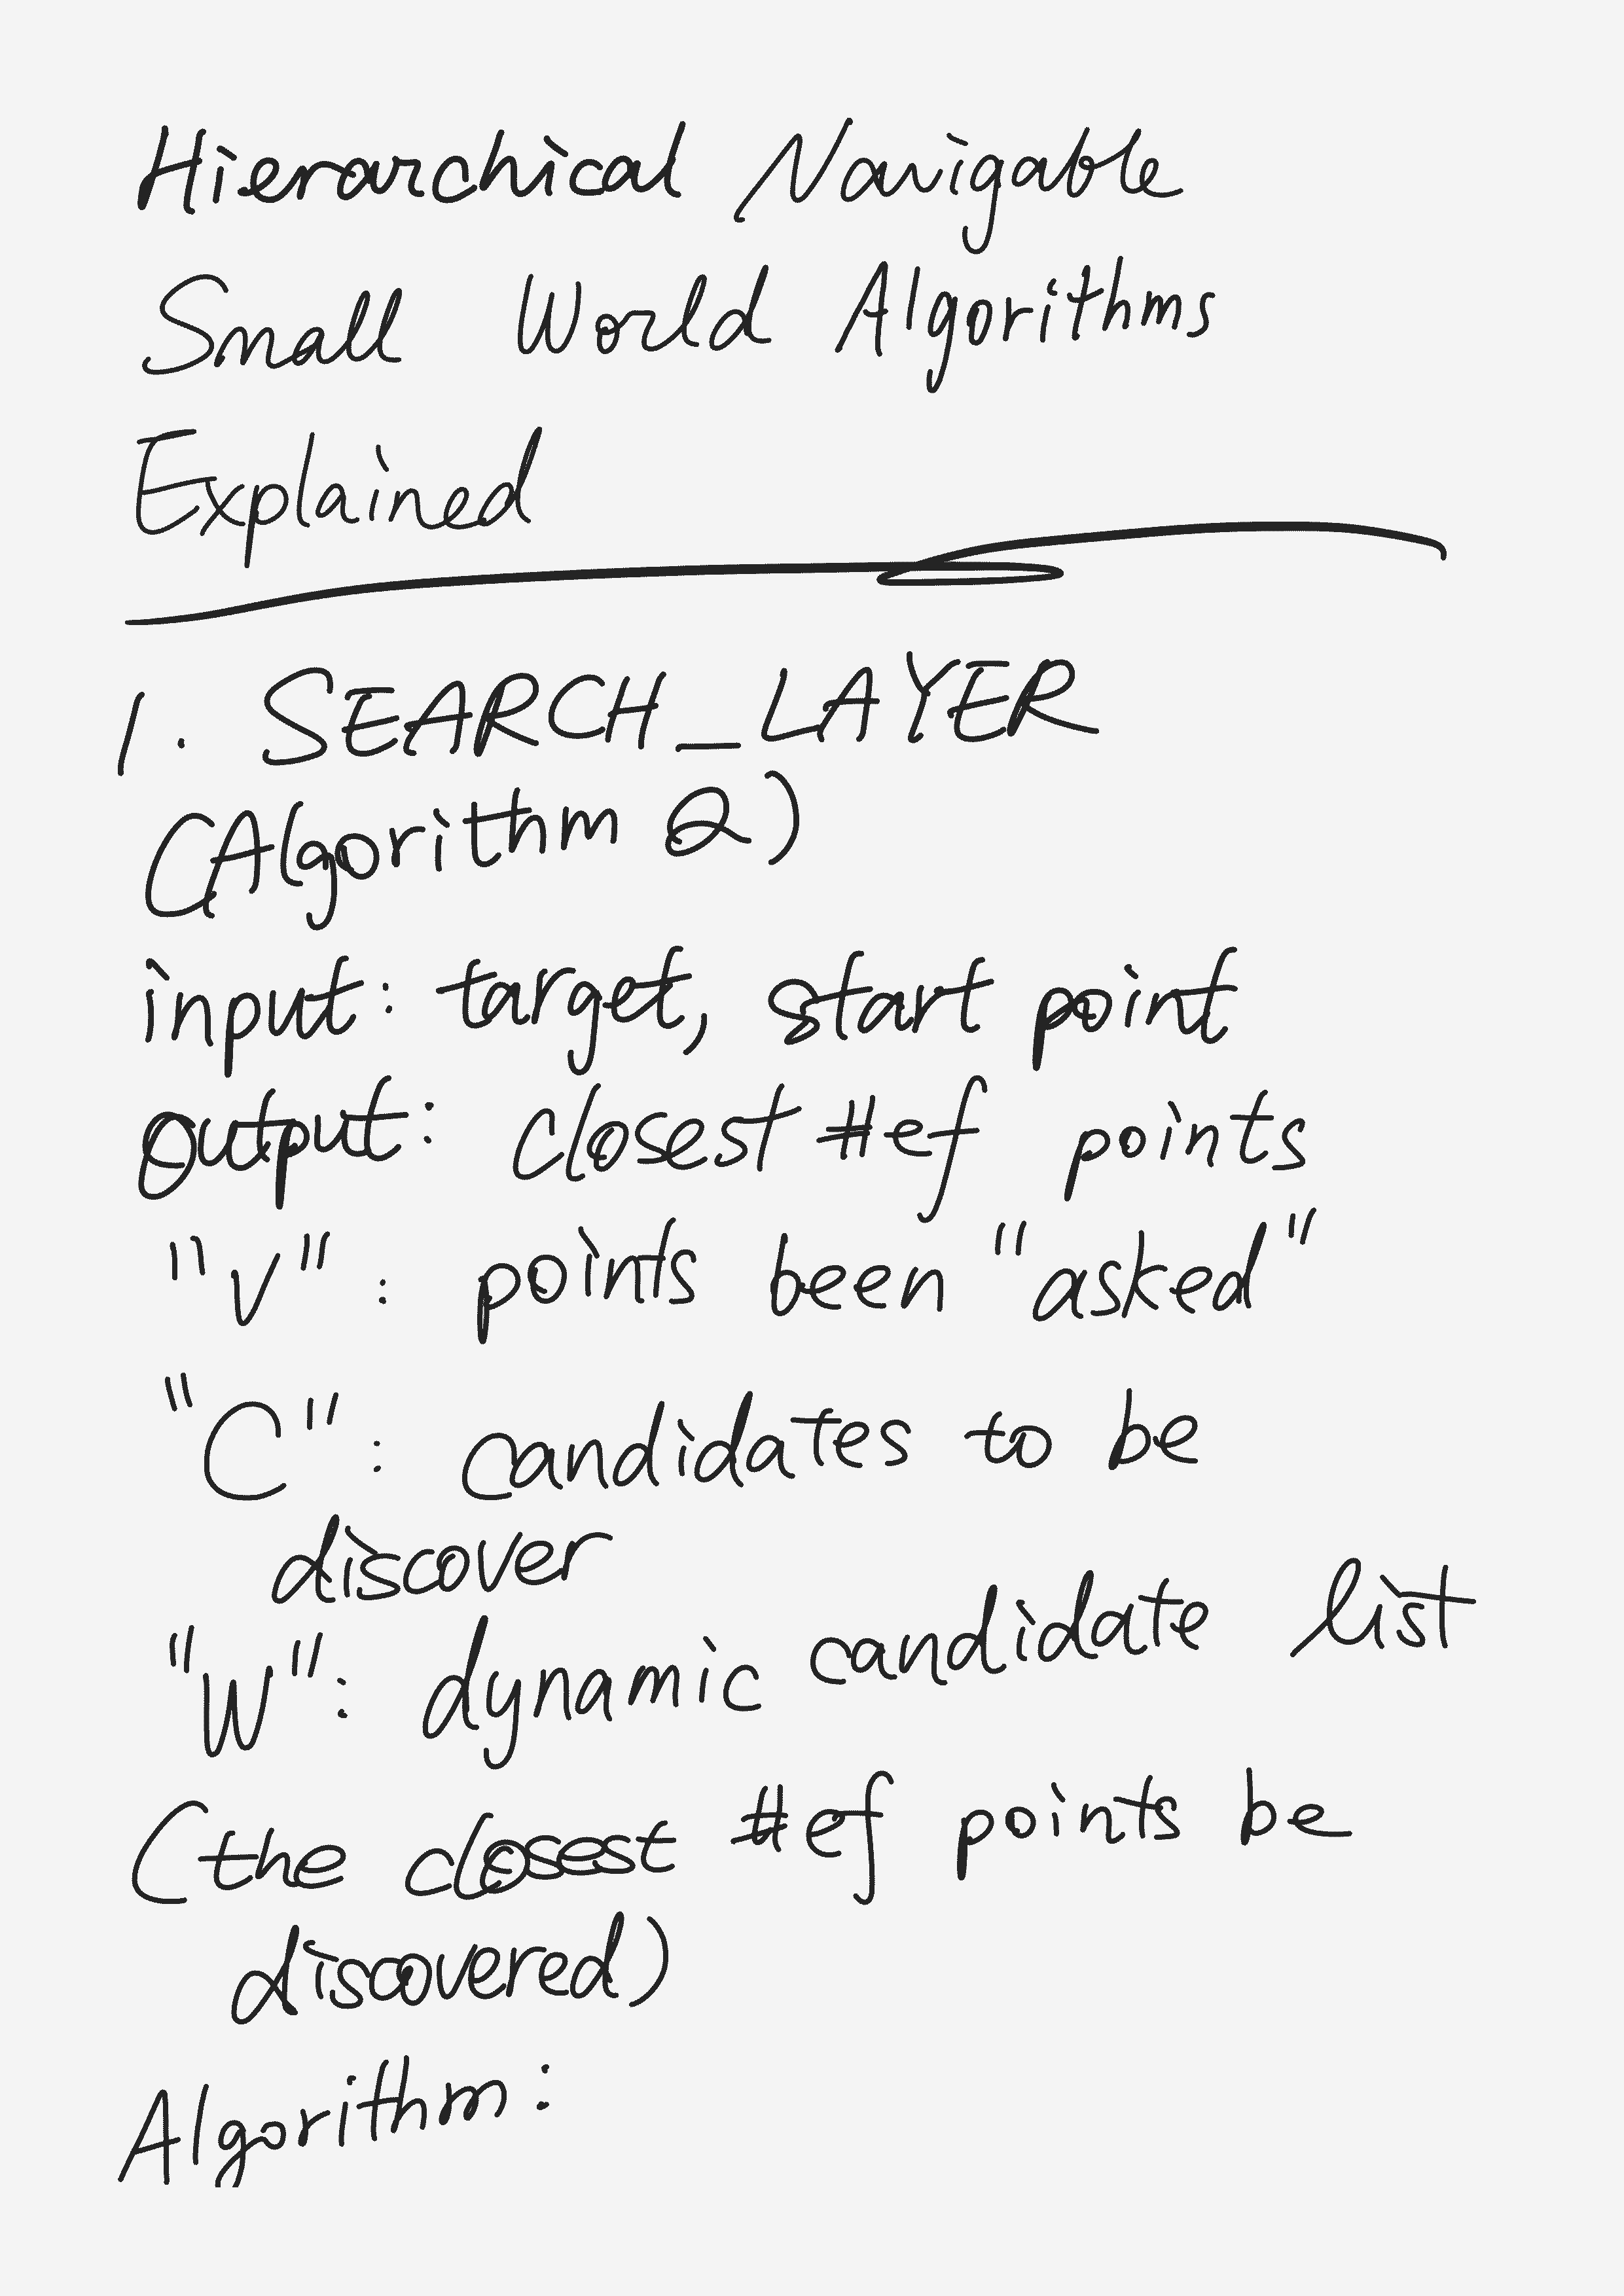 Hierarchical Navigable
Small World Algorithms
Explained
1. SEARCH_LAYER
(Algorithm 2)
input: target, start point
output: closest #ef points
"V": points been "asked"
"C": candidates to be
discover
"W": dynamic candidate list
(the closest #ef points be
discovered)
Algorithm: